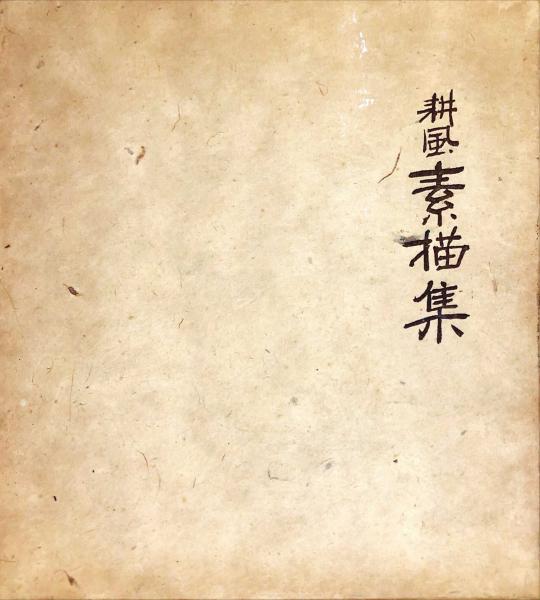 耕風素描集